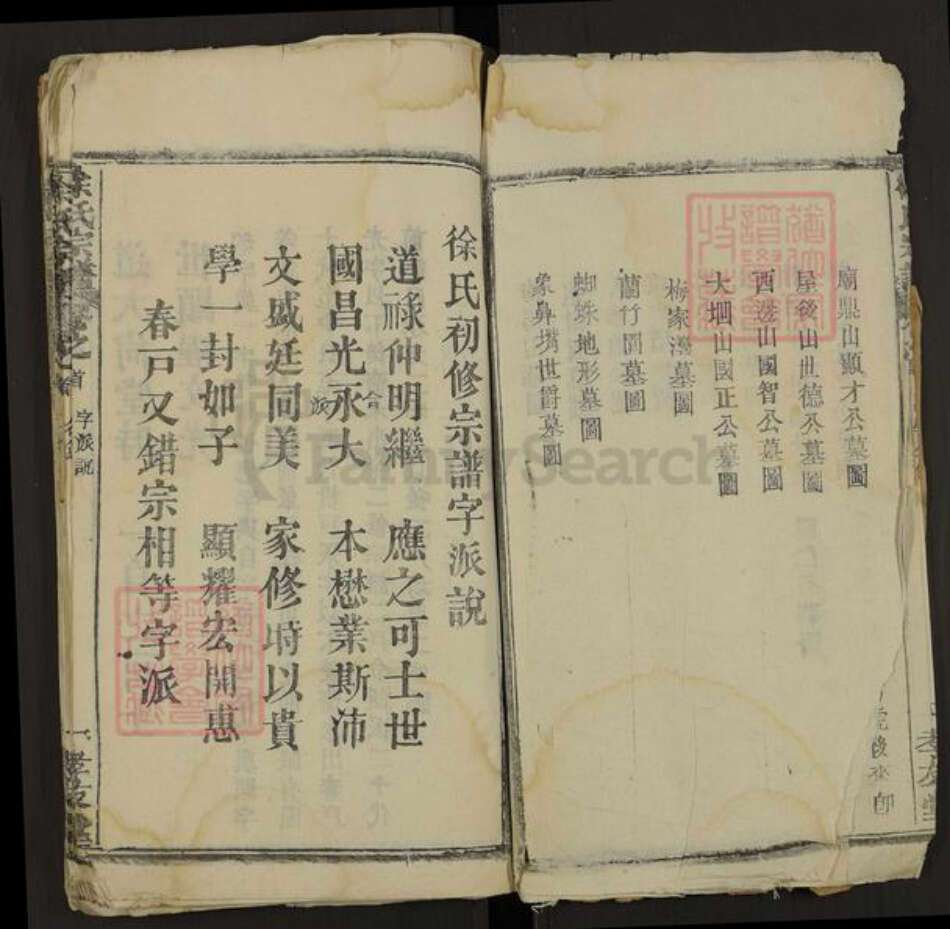 廟鼎山顯才公墓圖
屋後山世德公墓圖
西邊山國智公墓圖
大堋山國正公墓圖
梅家灣墓圖
蘭竹園墓圖
蜘蛛地形墓圖
象鼻嘴世爵墓圖
徐氏初修宗譜字派說
道祿仲明繼 應之可士世
國昌光永大 本懋業斯沛
文盛廷同美 家修時以貴
學一封如子 顯耀宏開惠
春戸又錯宗相等字派
徐氏宗譜 卷之首 字派說
FamilySearch